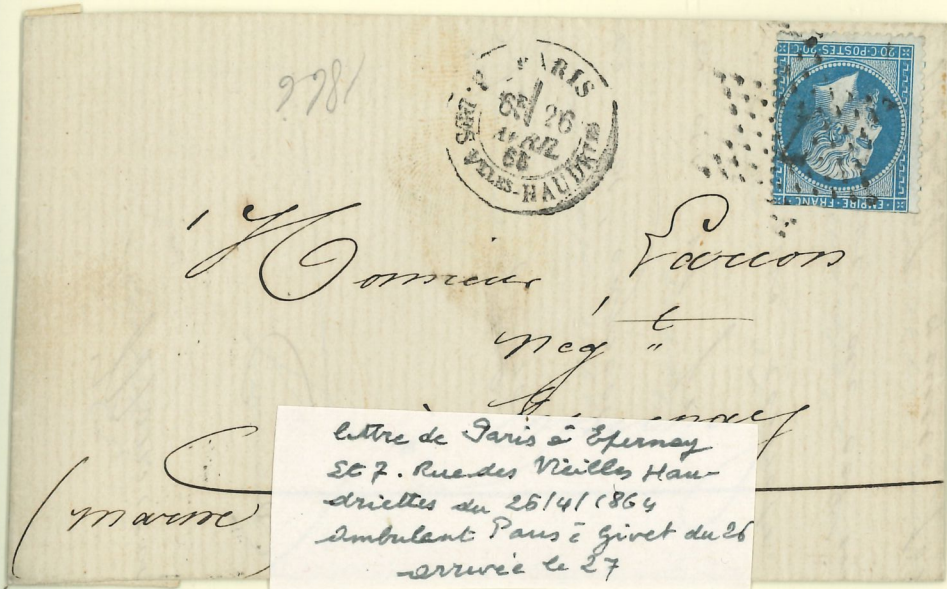 1866
PARIS
6E/ 26
AVRIL
66
R. DES VLLES-HAUDRTES
20 C·POSTES·20·C
EMPIRE·FRANC
Monsieur
nég t
à Epernay
(marne
lettre de Paris à Epernay
Et 7. Rue des Vieilles Hau-
driettes du 26/4/1864
Ambulant Paris à Givet du 26
arrivée le 27